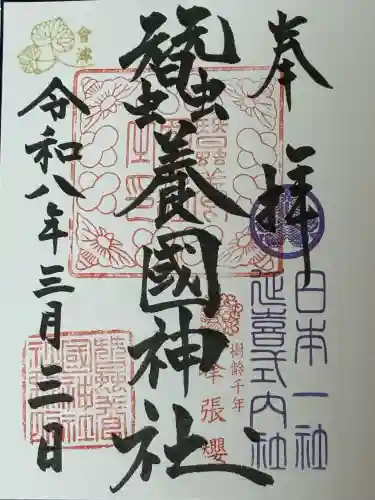 奉拝
日本一社
延喜式内社
蠶養國神社
樹齢千年
峰張櫻
會津
令和八年三月三日